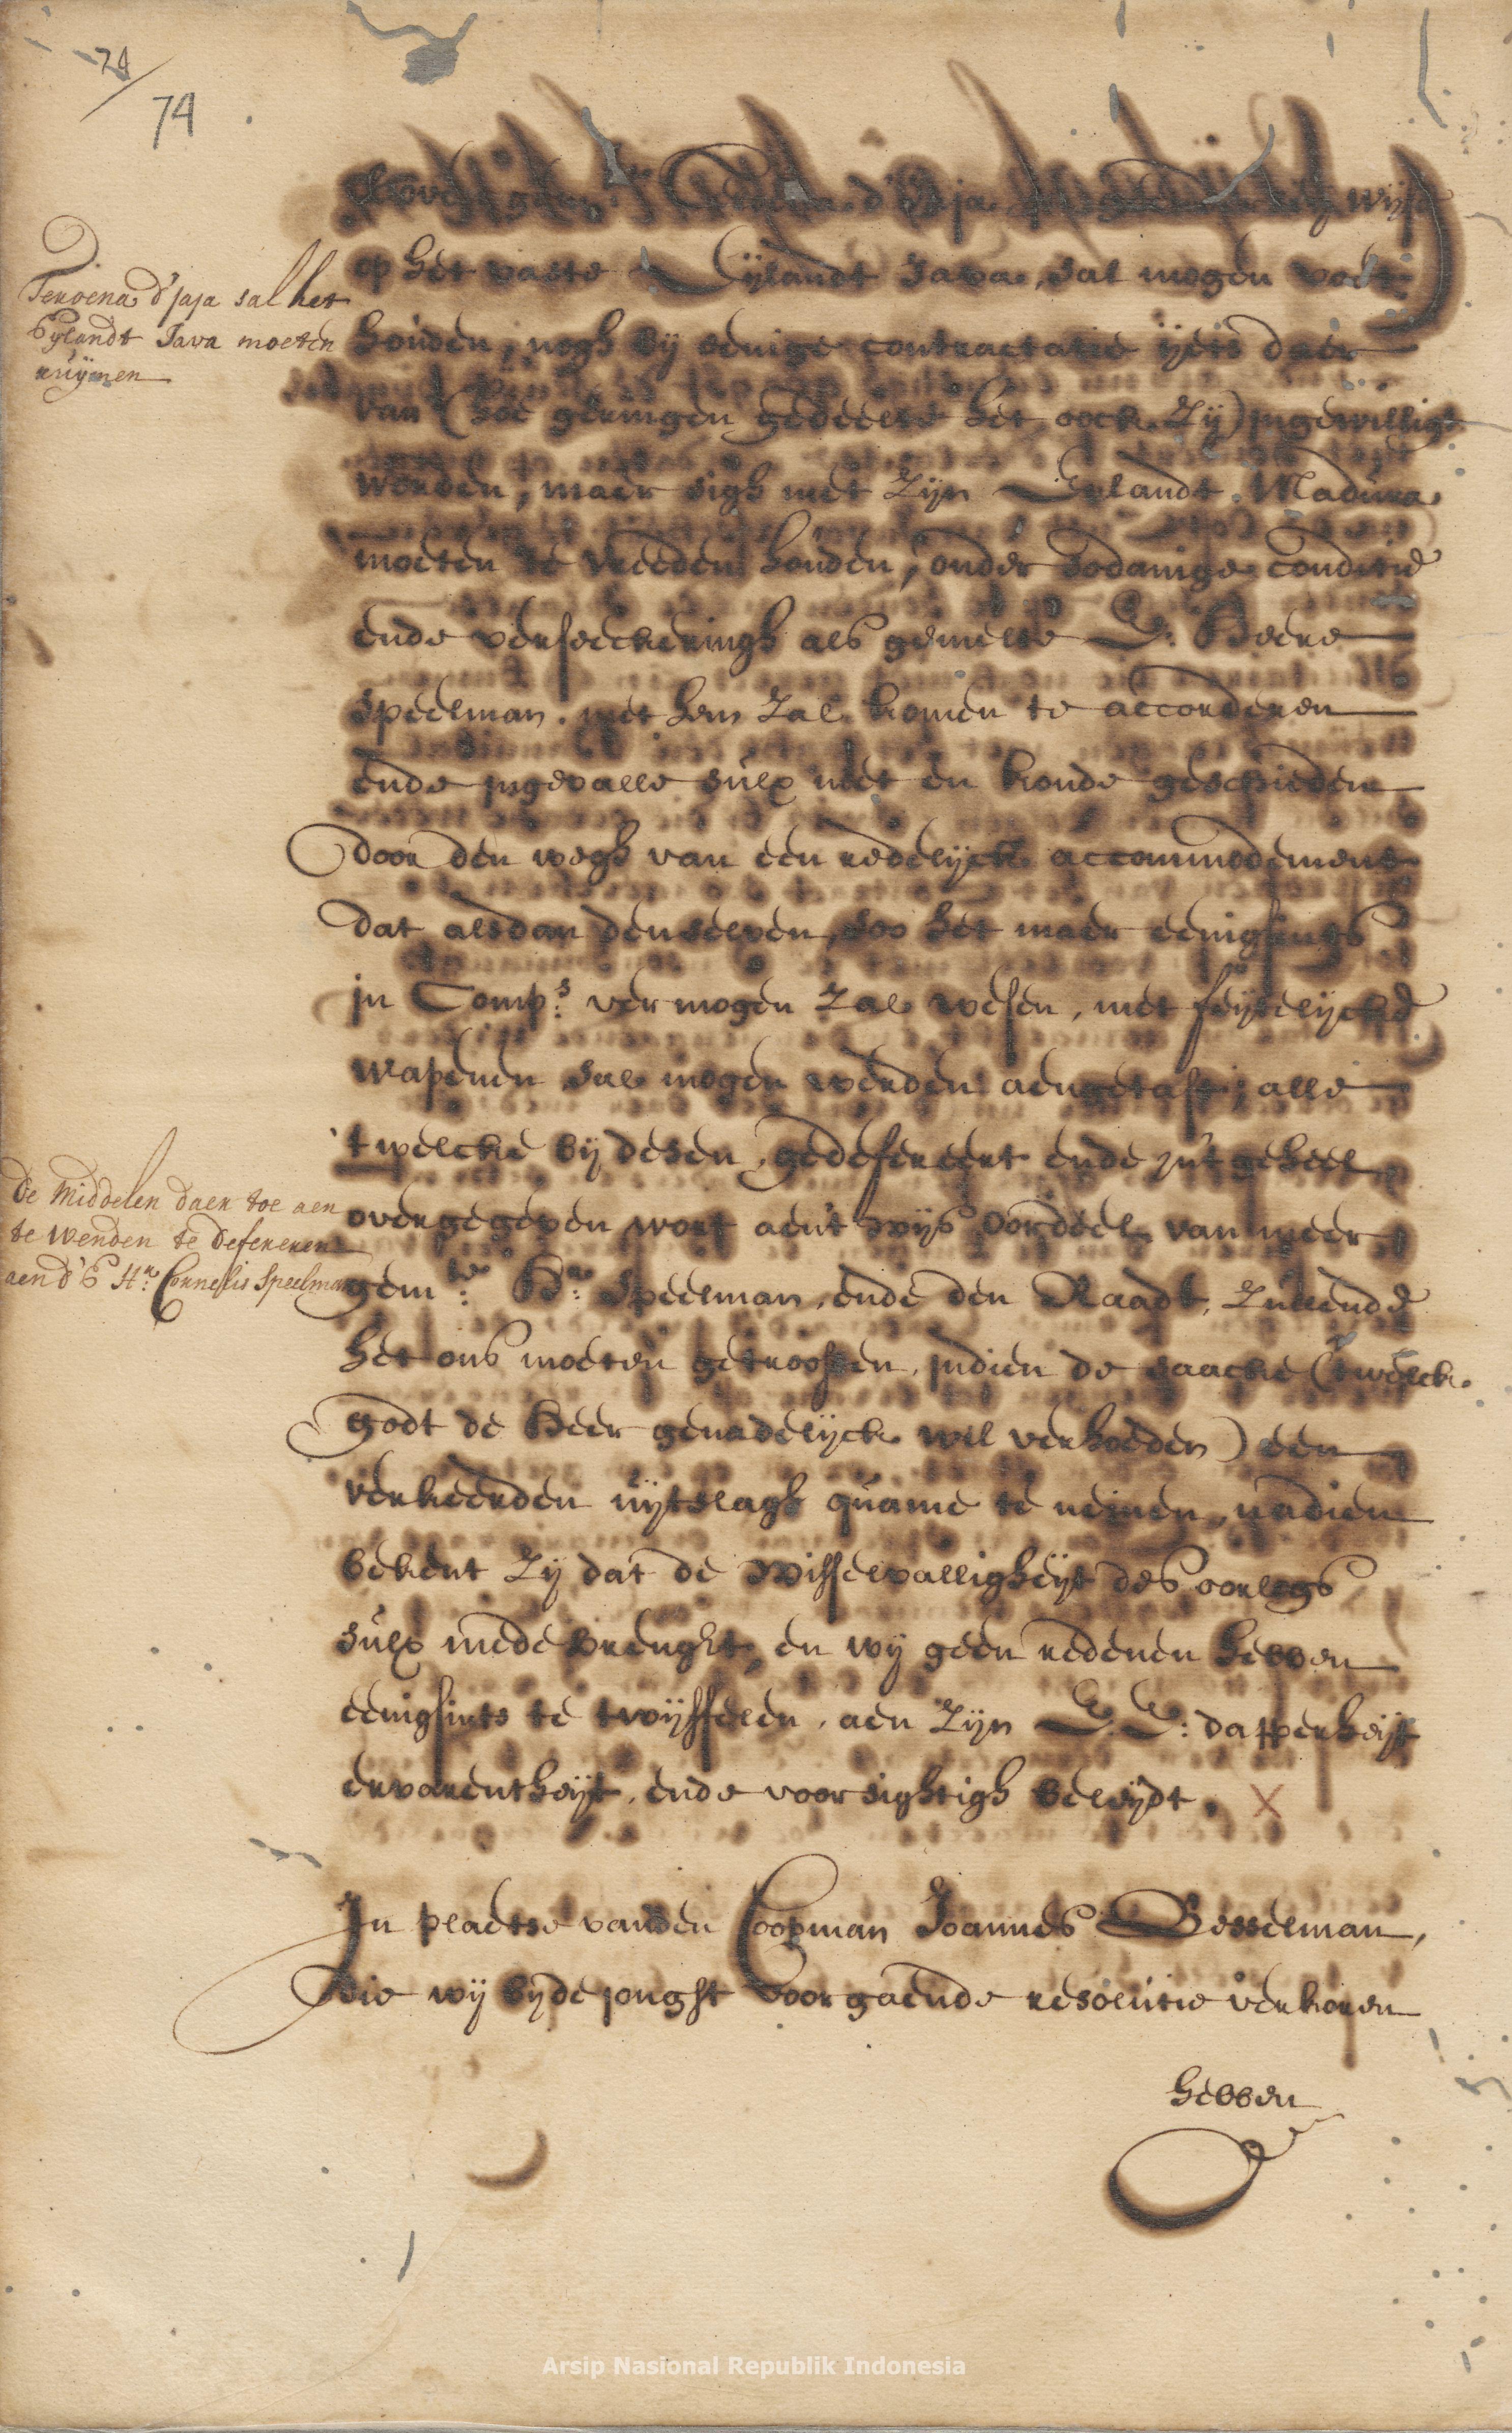 74
74
Teroena d'jaja sal het
Eijlandt Java moeten
ruijmen
wijse
op het vaste Eijlandt Java, sal mogen voet
houden, nogh bij eenige contractatie ijets daer
van (hoe geringen gedeelte het oock zij) ingewillight
werden, maer sigh met zijn Eylandt Madura
moeten te vreeden houden, onder sodanige conditie
ende verseeckeringh als gemelte E: Heere
Speelman met hem zal komen te accorderen
ende ingevalle sulx niet en konde geschieden
door den wegh van een redelijck accommodement
dat alsdan denselven, soo het maer eenighsints
in Comp:s vermogen zal wesen, met feijtelijcke
wapenen sal mogen werden aengetast, alle
'twelcke bij desen gedefereert ende in't geheel
De Middelen daer toe aen
te wenden te defereren
aen d'E H:r Cornelis Speelman
overgegeven wort aen't wijs oordeel van meer
gem:te H:r Speelman, ende den Raadt, zullende
het ons moeten getroosten, indien de saacke ('twelck
Godt de Heer genadelijck wil verhoeden) een
verkeerden uijtslagh quame te nemen, nadien
bekent zij dat de wisselvalligheijt des oorlogs
sulx mede brenght, en wij geen redenen hebben
eenigsints te twijffelen, aen zijn E. E: dapperheijt
ervarentheijt, ende voorsightigh beleijdt. X
In plaetse van den Coopman Joannes Besselman,
die wij bij de jonghst voorgaende resolutie verkoren
hebben
Arsip Nasional Republik Indonesia